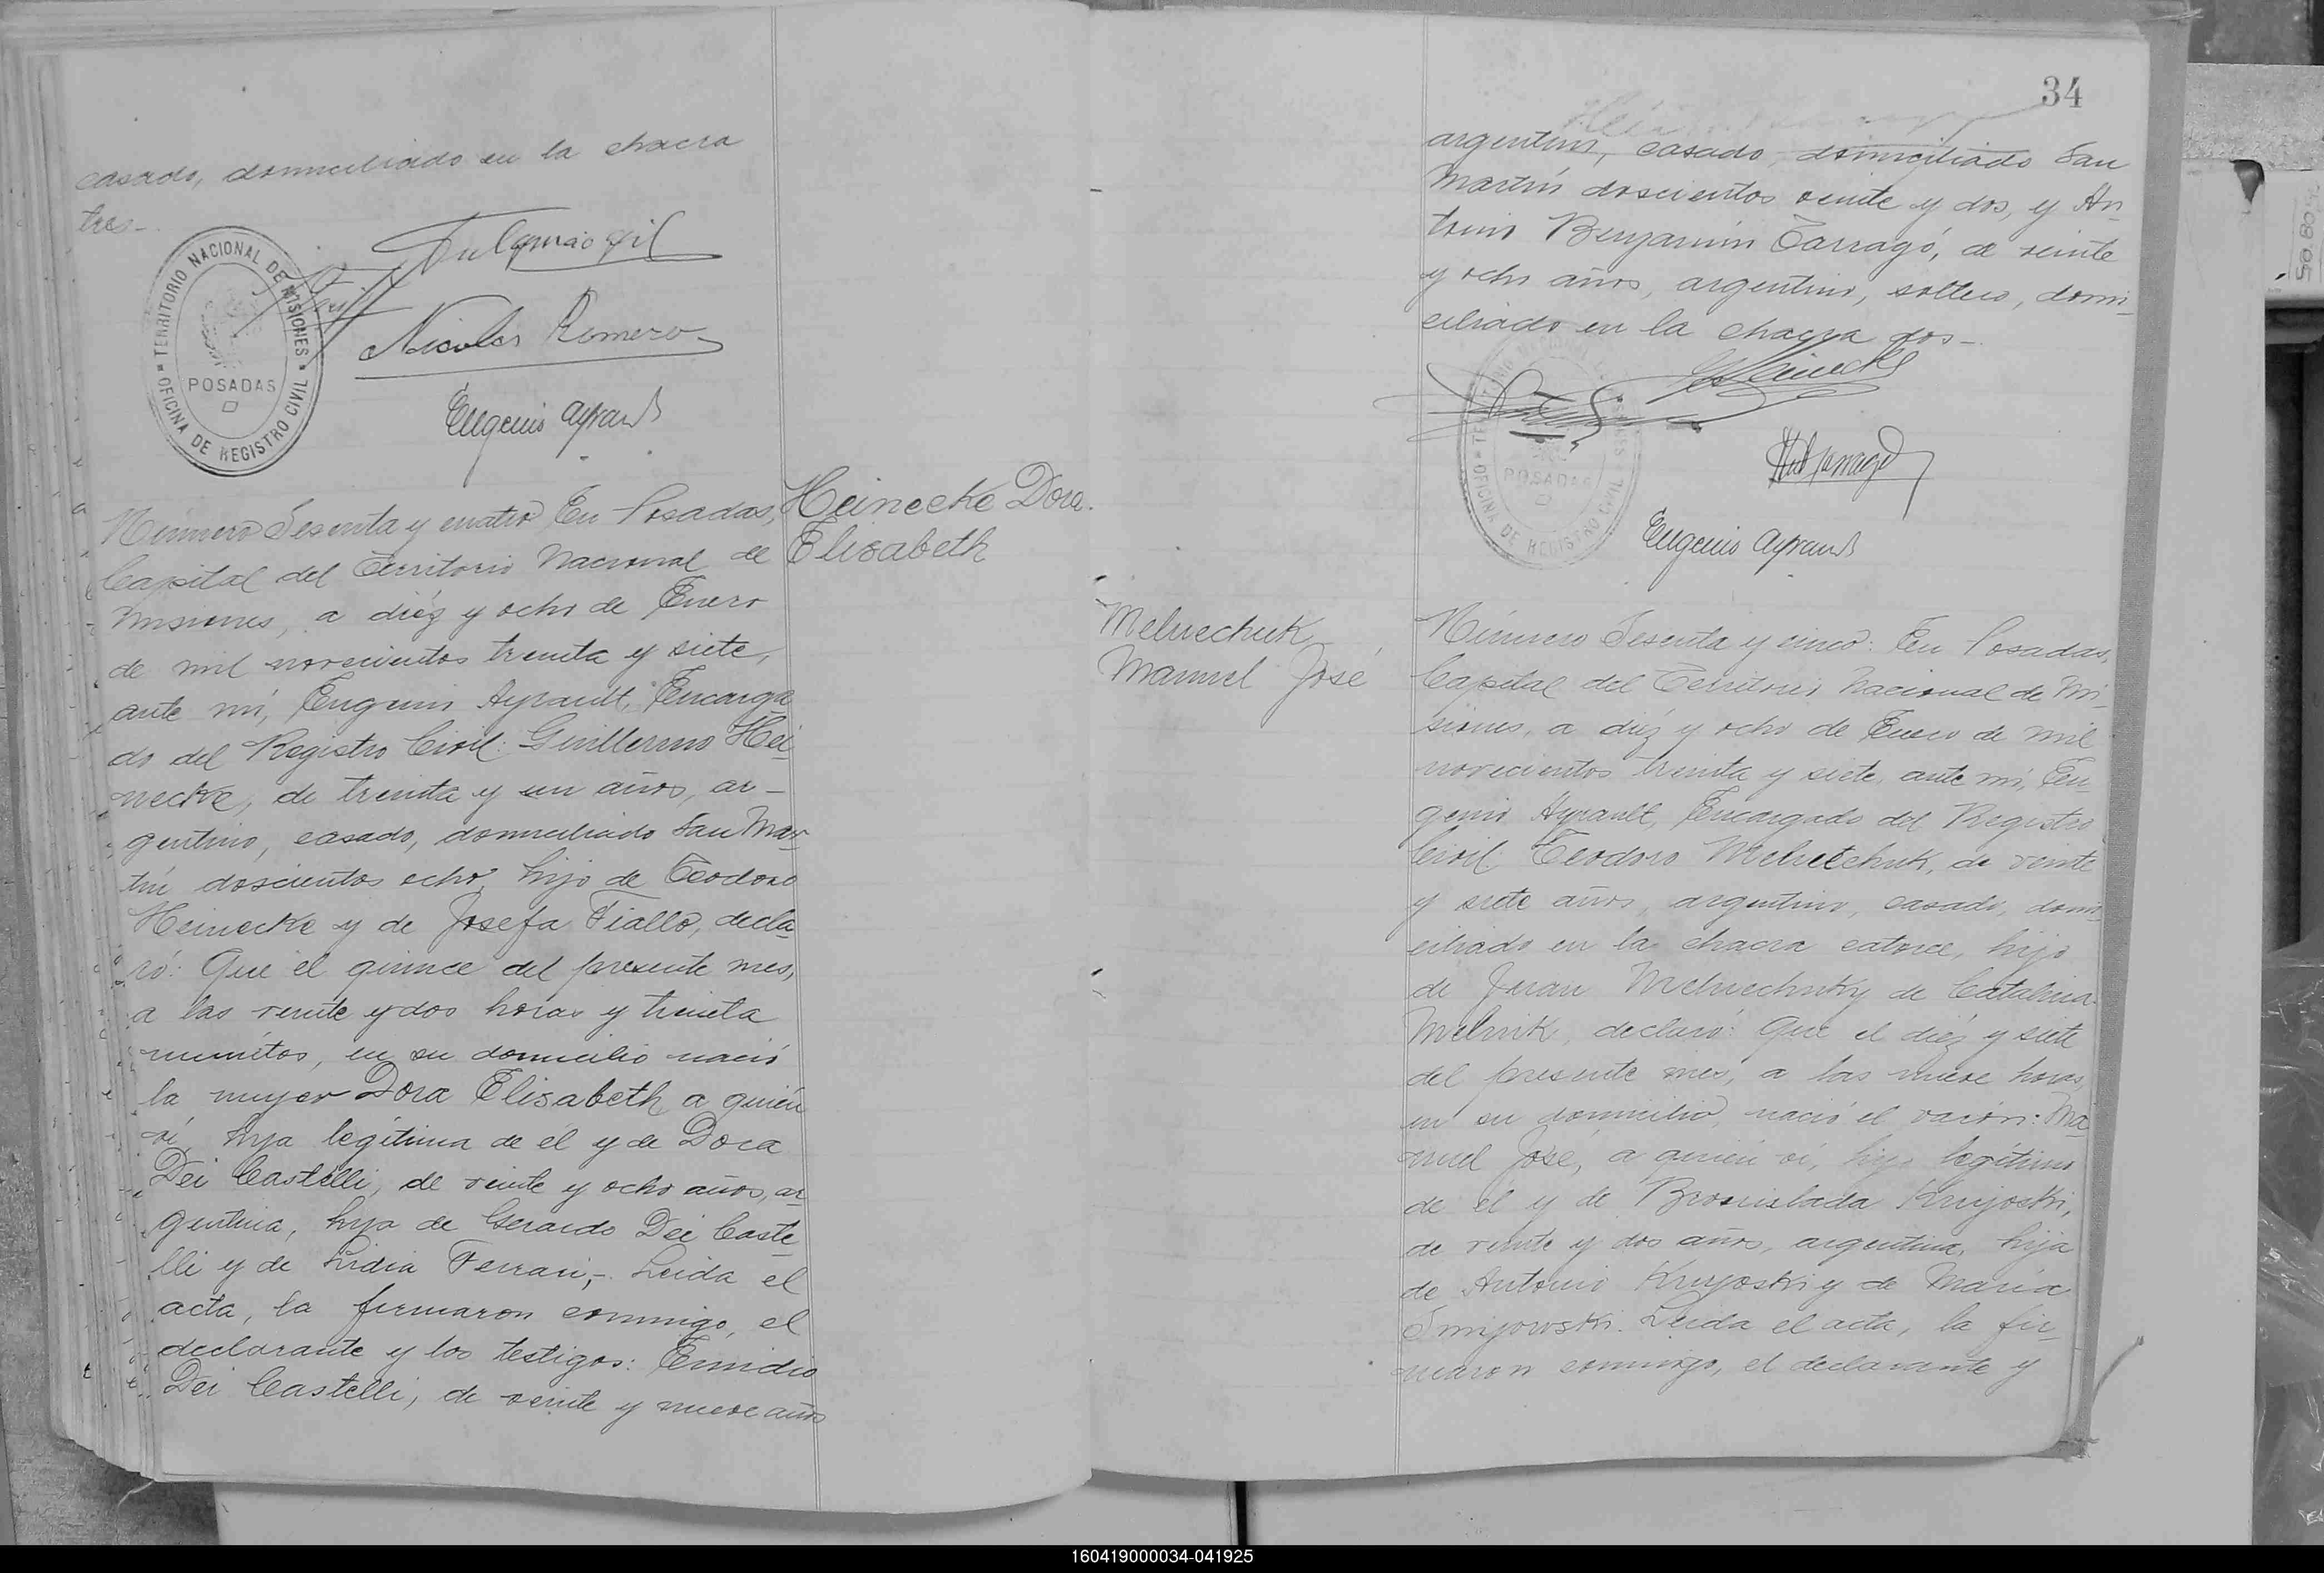 casado, domiciliado en la chacra
tres_
TERRITORIO NACIONAL DE MISIONES
OFICINA DE REGISTRO CIVIL
POSADAS
Nicolas Romero
Eugenio Ayrault
Heinecke Dora
Elisabeth
Número Sesenta y cuatro En Posadas,
Capital del Territorio Nacional de
Misiones, a diéz y ocho de Enero
de mil novecientos treinta y siete,
ante mí, Eugenio Ayrault, Encarga
do del Registro Civil: Guillermo Hei
necke, de treinta y un años, ar_
gentino, casado, domiciliado San Mar
tín doscientos ocho, hijo de Teodoro
Heinecke y de Josefa Fiallo, decla
ró: Que el quince del presente mes,
a las veinte y dos horas y treinta
minutos, en su domicilio nació
la mujer Dora Elisabeth a quién
ví, hija legítima de él y de Dora
Dei Castelli, de veinte y ocho años, ar
gentina, hija de Gerardo Dei Caste
lli y de Lidia Ferrari,_ Leida el
acta, la firmaron conmigo, el
declarante y los testigos: Emidio
Dei Castelli, de veinte y nueve años
34
argentino, casado, domiciliado San
Martín doscientos veinte y dos, y An_
tonio Benjamín Tarragó, de veinte
y ocho años, argentino, soltero, domi_
ciliado en la chacra dos_
GHeinecke
POSADAS
OFICINA DE REGISTRO CIVIL
Eugenio Ayrault
Melnechuk
Manuel José
Número Sesenta y cinco: En Posadas,
Capital del Territorio Nacional de Mi_
siones, a diéz y ocho de Enero de mil
novecientos treinta y siete, ante mí, Eu_
genio Ayrault, Encargado del Registro
Civil: Teodoro Melnetchuk, de veinte
y siete años, argentino, casado, domi_
ciliado en la chacra catorce, hijo
de Juan Melnechuk y de Catalina
Melnik, declaró: Que el diéz y siete
del presente mes, a las nueve horas,
en su domicilio, nació el varón: Ma
nuel José, a quién ví, hijo legítimo
de él y de
de veinte y dos años, argentina, hija
de Antonio y de María
Leida el acta, la fir_
maron conmigo, el declarante y
160419000034-041925